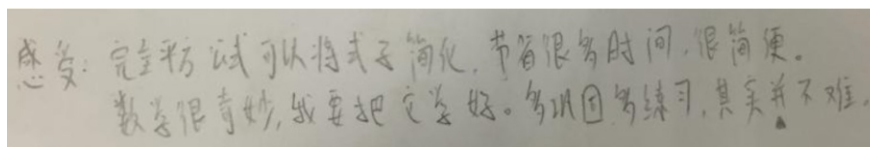 感受：完全平方公式可以将式子简化，节省很多时间，很简便。
数学很奇妙，我要把它学好。多巩固多练习，其实并不难。